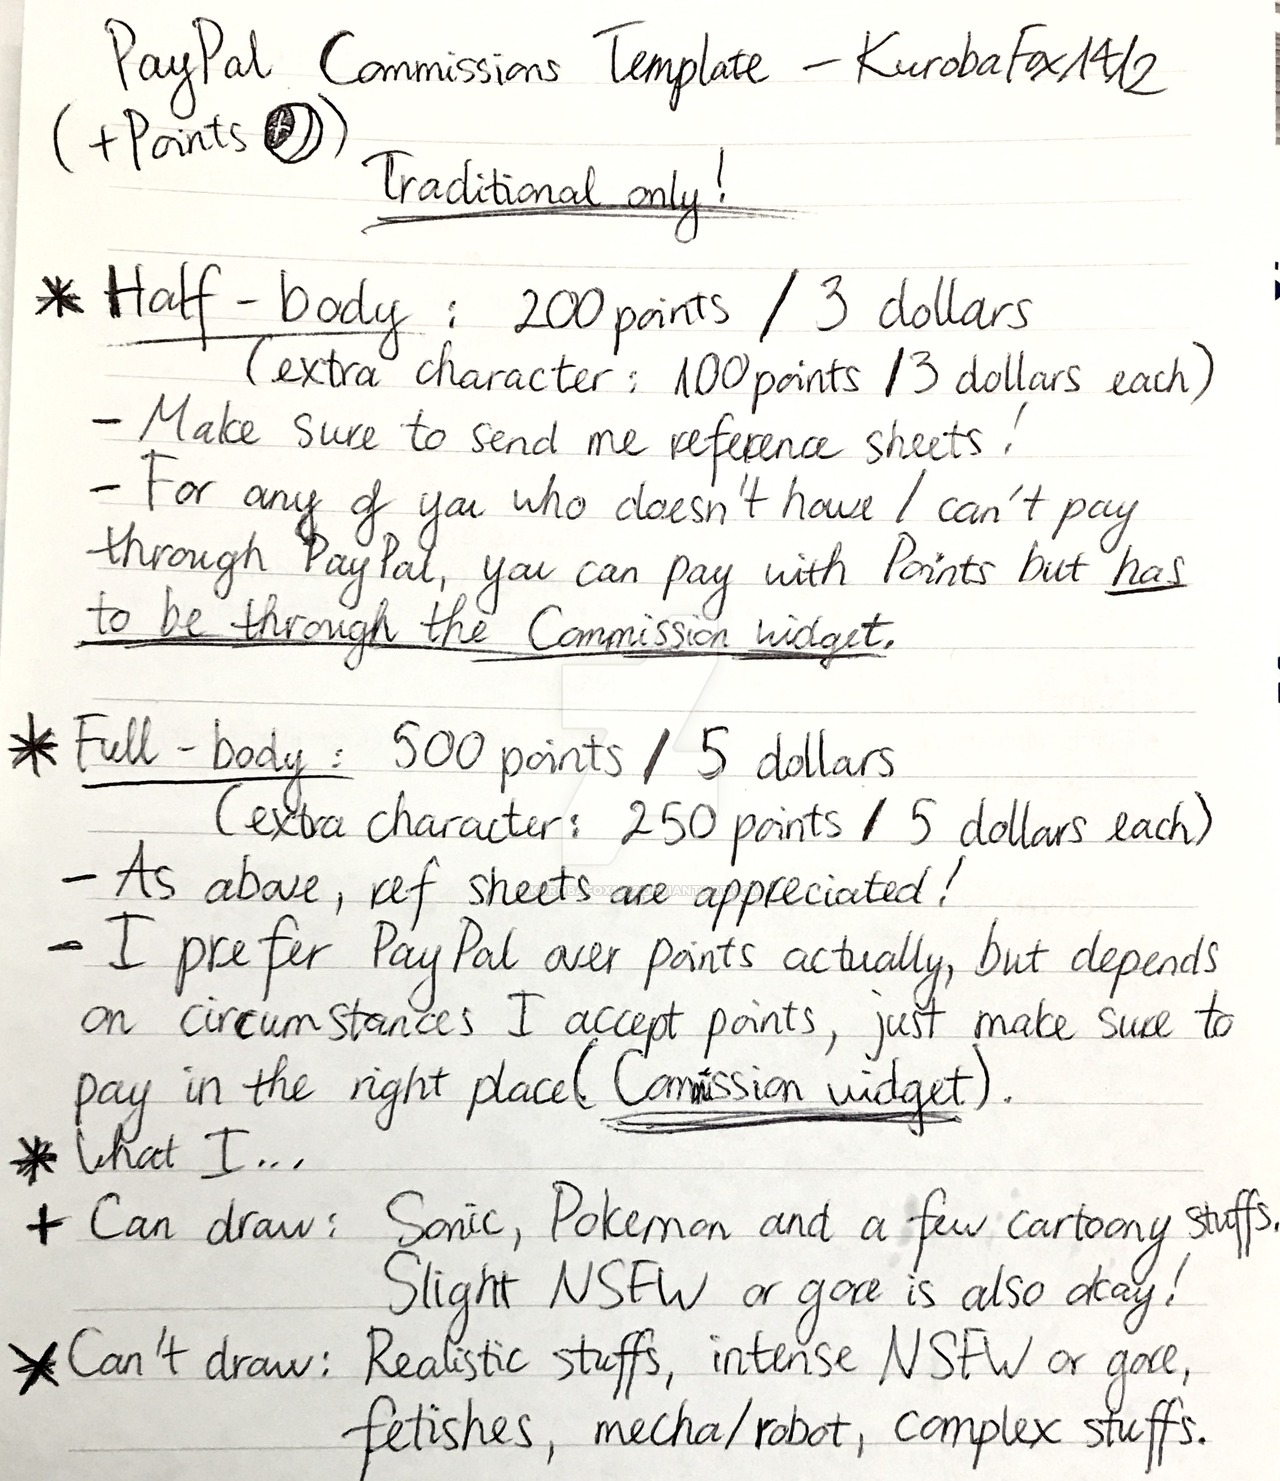 PayPal Commissions Template - KurobaFox1412
(+Points)
Traditional only!
* Half-body : 200 points / 3 dollars
(extra character : 100 points / 3 dollars each)
- Make sure to send me reference sheets!
- For any of you who doesn't have / can't pay
through PayPal, you can pay with Points but has
to be through the Commission widget.
* Full-body : 500 points / 5 dollars
(extra character : 250 points / 5 dollars each)
- As above, ref sheets are appreciated!
- I prefer PayPal over points actually, but depends
on circumstances I accept points, just make sure to
pay in the right place (Comission widget).
* What I...
+ Can draw : Sonic, Pokemon and a few cartoony stuffs.
Slight NSFW or gore is also okay!
x Can't draw : Realistic stuffs, intense NSFW or gore,
fetishes, mecha/robot, complex stuffs.